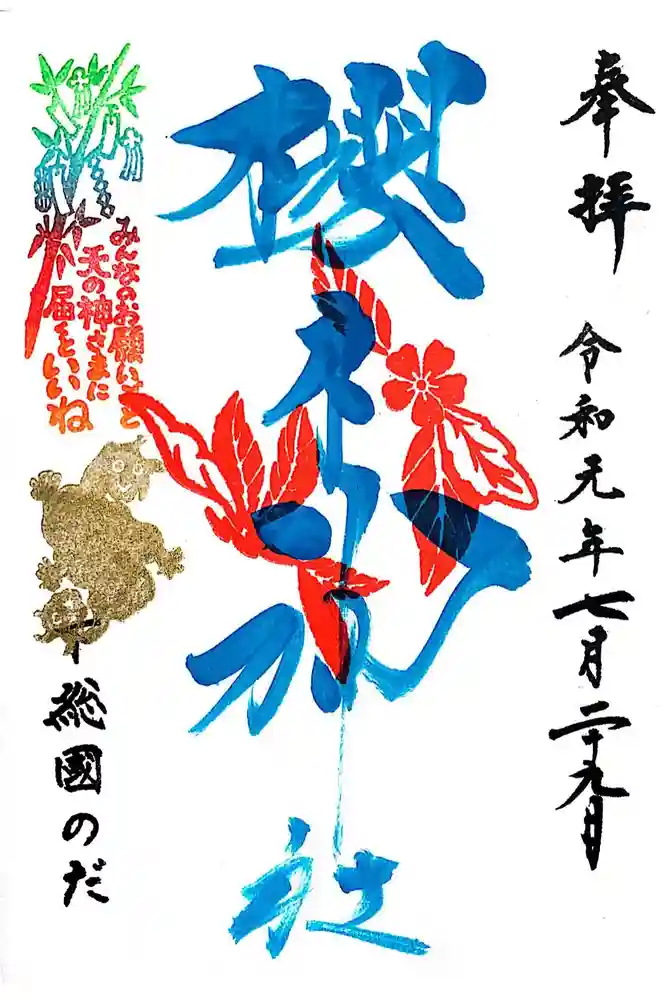 奉拝 令和元年七月二十九日
櫻木神社
みんなのお願いごと
天の神さまに
届くといいね
下総國のだ